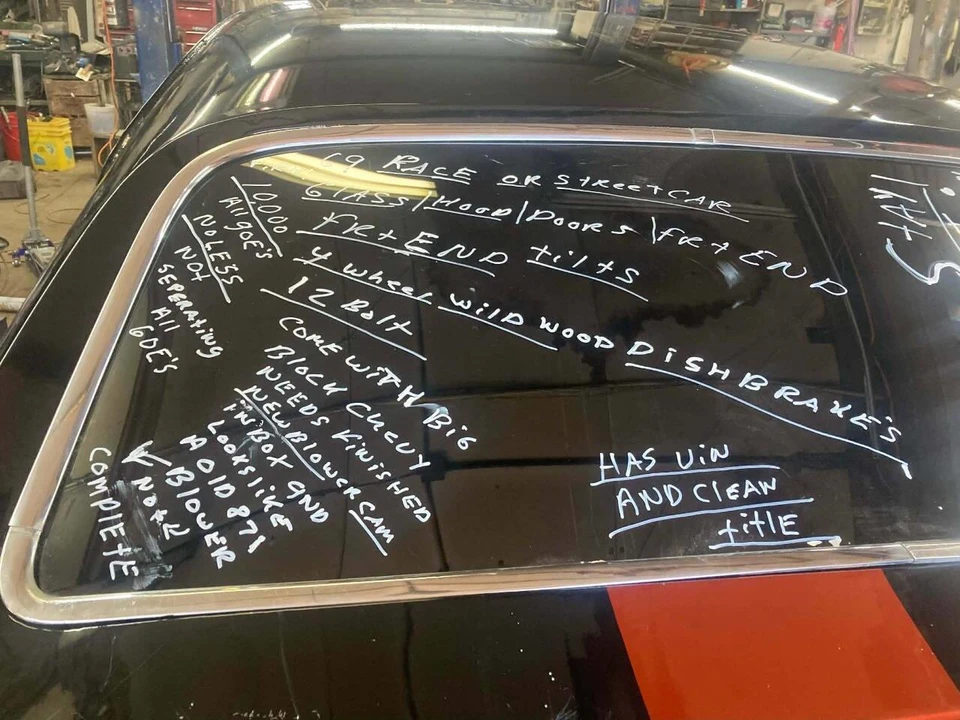 69 RACE OR StREEt CAR
GlASS/HOOD/DOORS/FRt END
FRt END tiltS
4 WHEEL WILDWOOD DISHBRAKE'S
12 Bolt
COME WITH BIG
BLOCK CHEVY
NEEDS FINISHED
NEW BLOWER CAM
IN BOX AND
LOOKS LIKE
A OLD 871
BLOWER
COMPLETE
10,000
All GOE'S
NO LESS
NOT
SEPERATING
All
GOE'S
HAS VIN
AND CLEAN
titlE